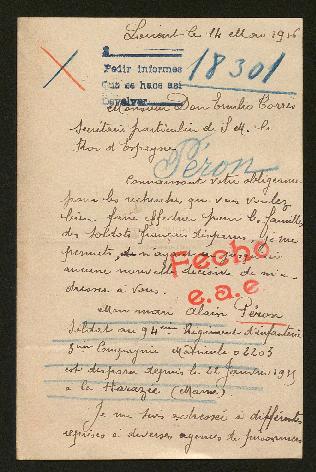 Lorient le 14 Mars 1916
2
Pedir informes
Que se hace así
Devolver
18301
Monsieur Don Emilio Torres
Secrétaire particulier de S. M. le
Roi d'Espagne
Péron
Connaissant votre obligeance
pour les recherches que vous voulez
bien faire effectuer pour les familles
des soldats français disparus, je me
permets, n'ayant pu
aucune nouvelle de m'a-
dresser à vous.
Fecho
e.a.e
Mon mari Alain Péron
soldat au 94ème Régiment d'infanterie
5me Compagnie Matricule 02205
est disparu depuis le 22 Janvier 1915
à la Harazée (Marne)
Je me suis adressée à différentes
reprises à diverses agences de